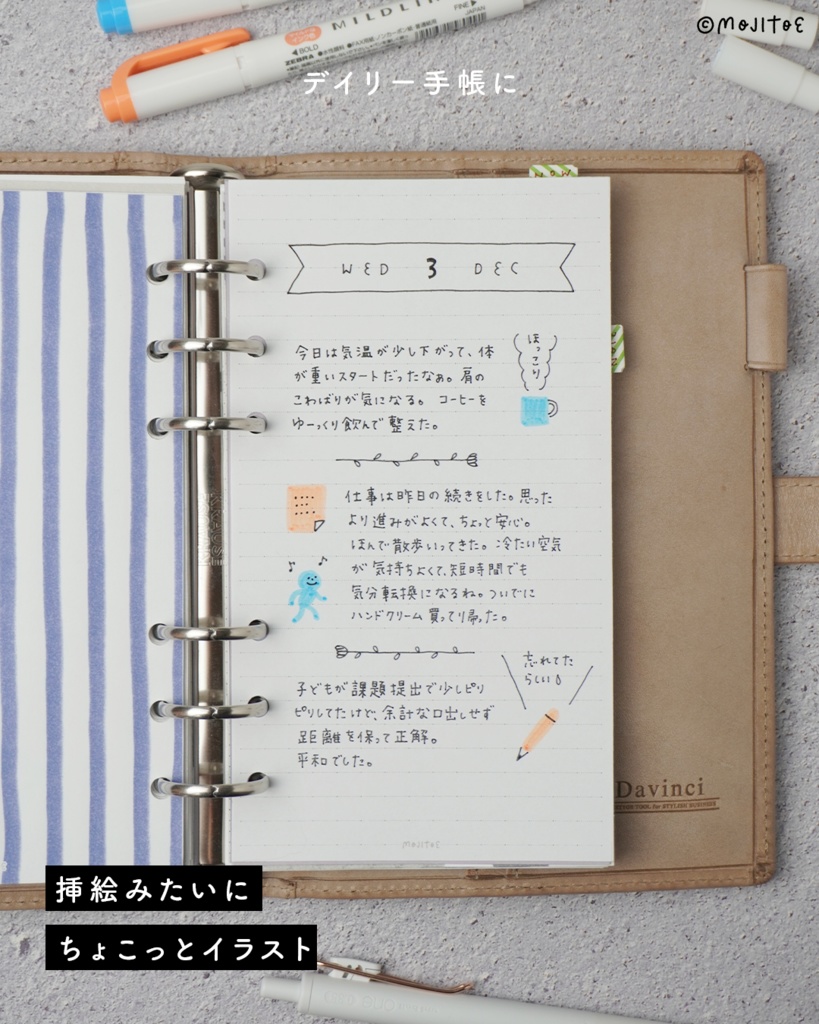 ©MOJITOE
MILDLI
BOLD
FINE
JAPAN
ZEBRA
デイリー手帳に
NOW
WED 3 DEC
今日は気温が少し下がって、体
が重いスタートだったなぁ。肩の
こわばりが気になる。コーヒーを
ゆーっくり飲んで整えた。
ほっこり
仕事は昨日の続きをした。思った
より進みがよくて、ちょっと安心。
ほんで散歩いってきた。冷たい空気
が気持ちよくて、短時間でも
気分転換になるね。ついでに
ハンドクリーム買ってり帰った。
忘れてた
らしい
子どもが課題提出で少しピリ
ピリしてたけど、余計な口出しせず
距離を保って正解。
平和でした。
Davinci
MOJITOE
挿絵みたいに
ちょこっとイラスト